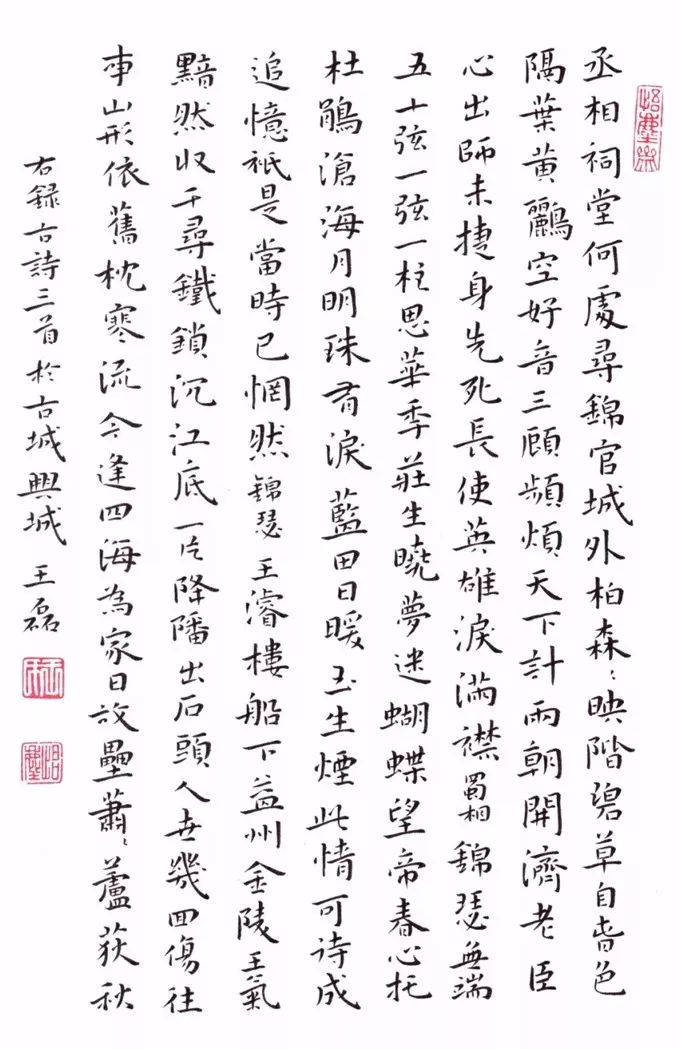 丞相祠堂何處尋錦官城外柏森〻映階碧草自春色
隔葉黃鸝空好音三顧頻煩天下計兩朝開濟老臣
心出師未捷身先死長使英雄淚滿襟蜀相錦瑟無端
五十弦一弦一柱思華年莊生曉夢迷蝴蝶望帝春心托
杜鵑滄海月明珠有淚藍田日暖玉生煙此情可待成
追憶祇是當時已惘然錦瑟王濬樓船下益州金陵王氣
黯然收千尋鐵鎖沉江底一片降旛出石頭人世幾回傷往
事山形依舊枕寒流今逢四海為家日故壘蕭〻蘆荻秋
右錄古詩三首於古城興城 王磊